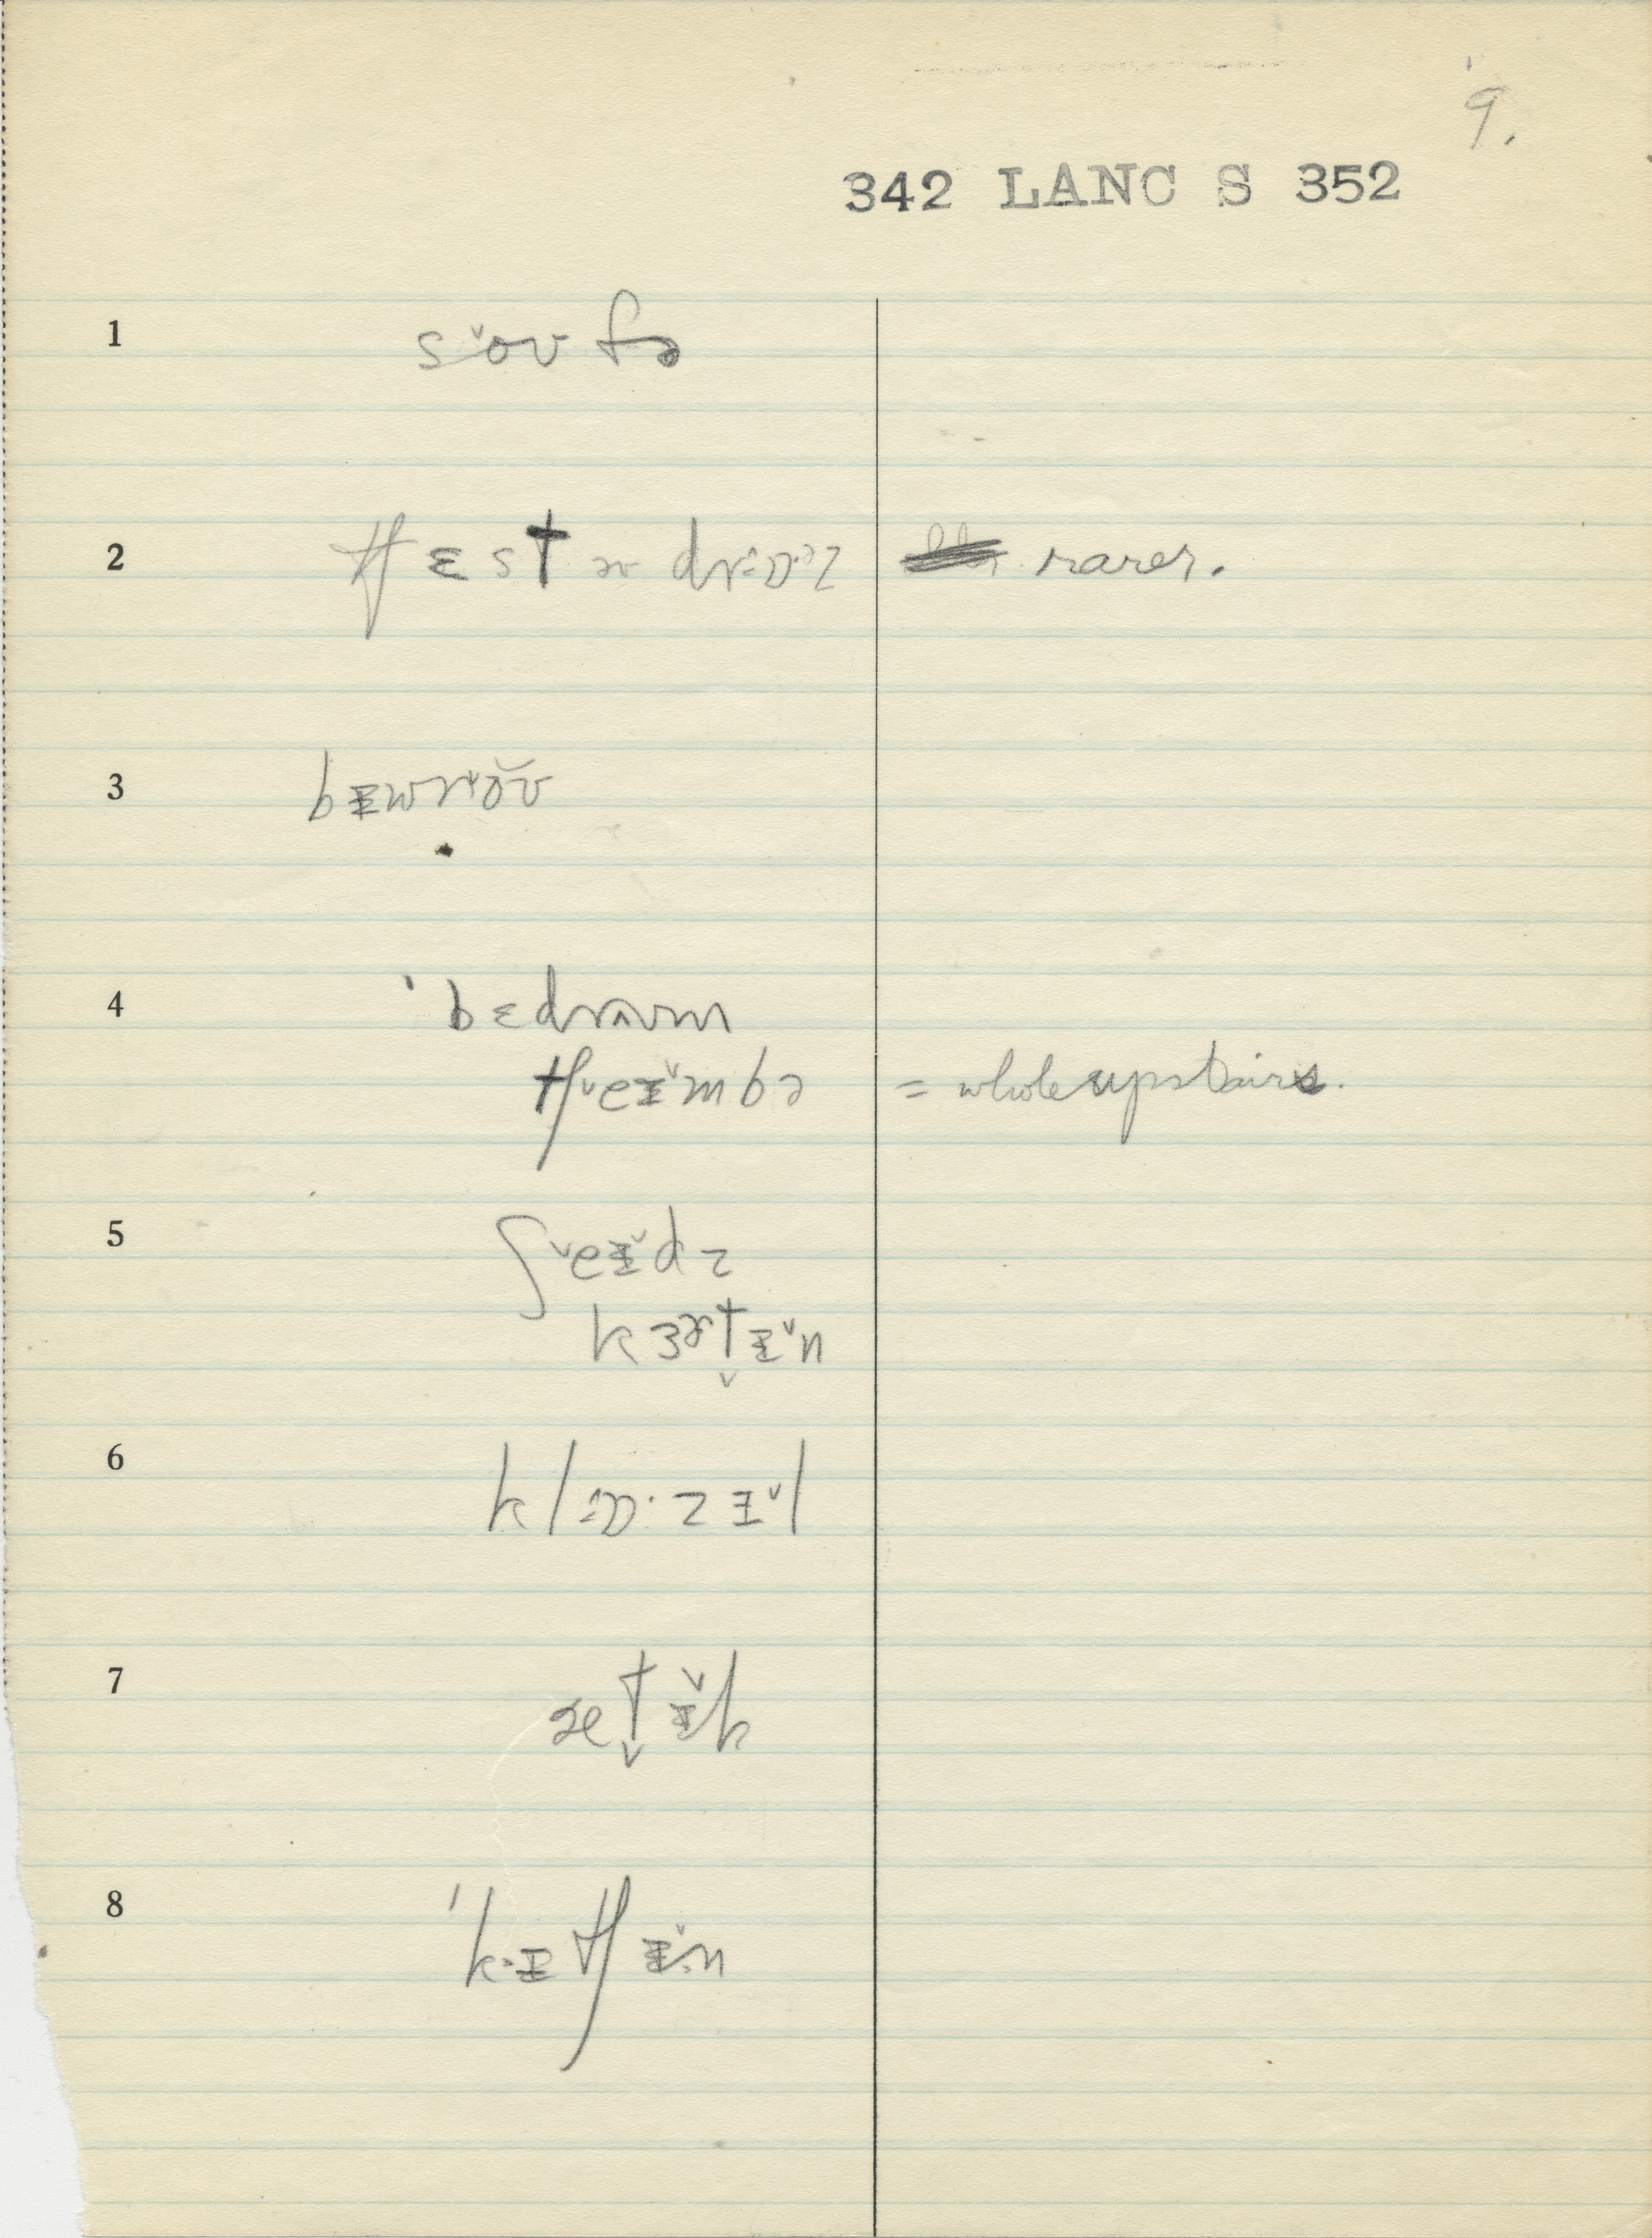 9.
342 LANC S 352
1 sˇoʊfə
2 tʃɛst ɚ drɔ·əz rarer.
3 bɪwrˇoʊ
4 ˈbɛdrʌʊm
tʃˇeɪˇmbə = whole upstairs.
5 ʃˇeɪˇdz
kɜɚt̬ɪˇn
6 klɒ·zɪˇl
7 æt̬ɪˇk
8 ˈkɪtʃɪˇn